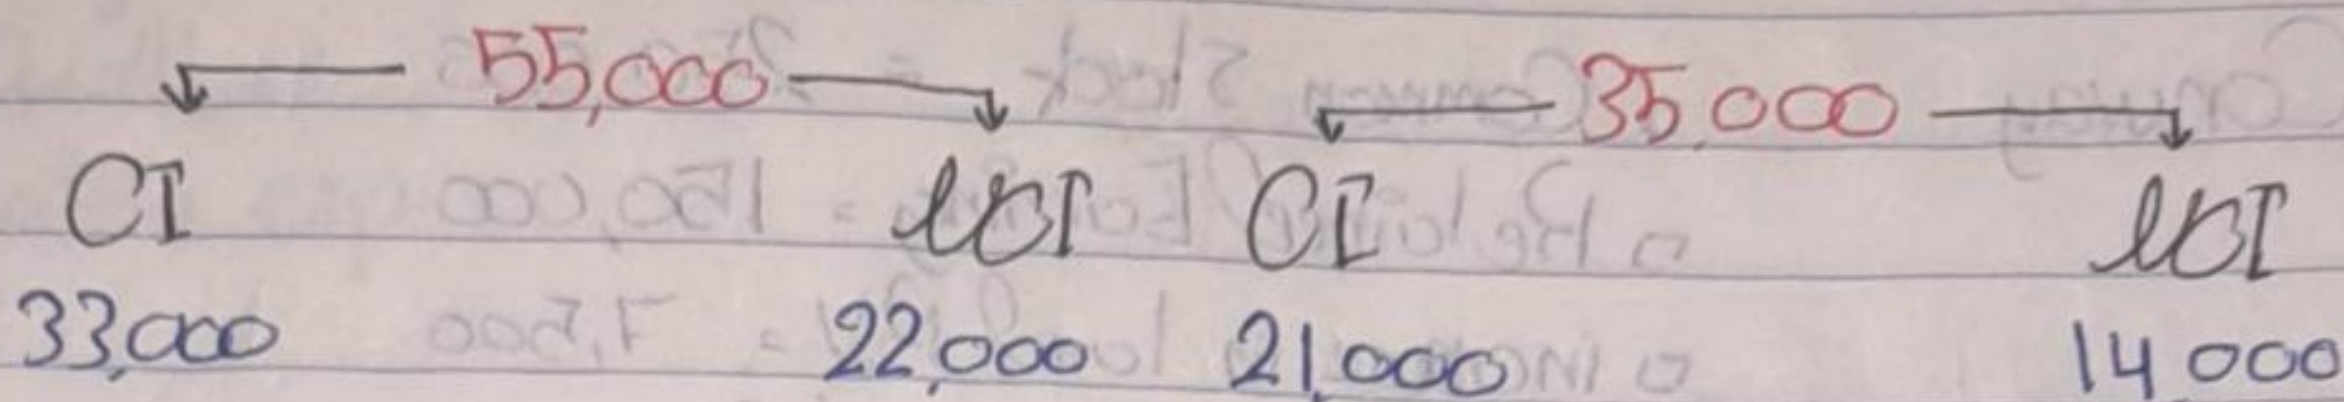 55,000 35,000
CI NCI CI NCI
33,000 22,000 21,000 14,000